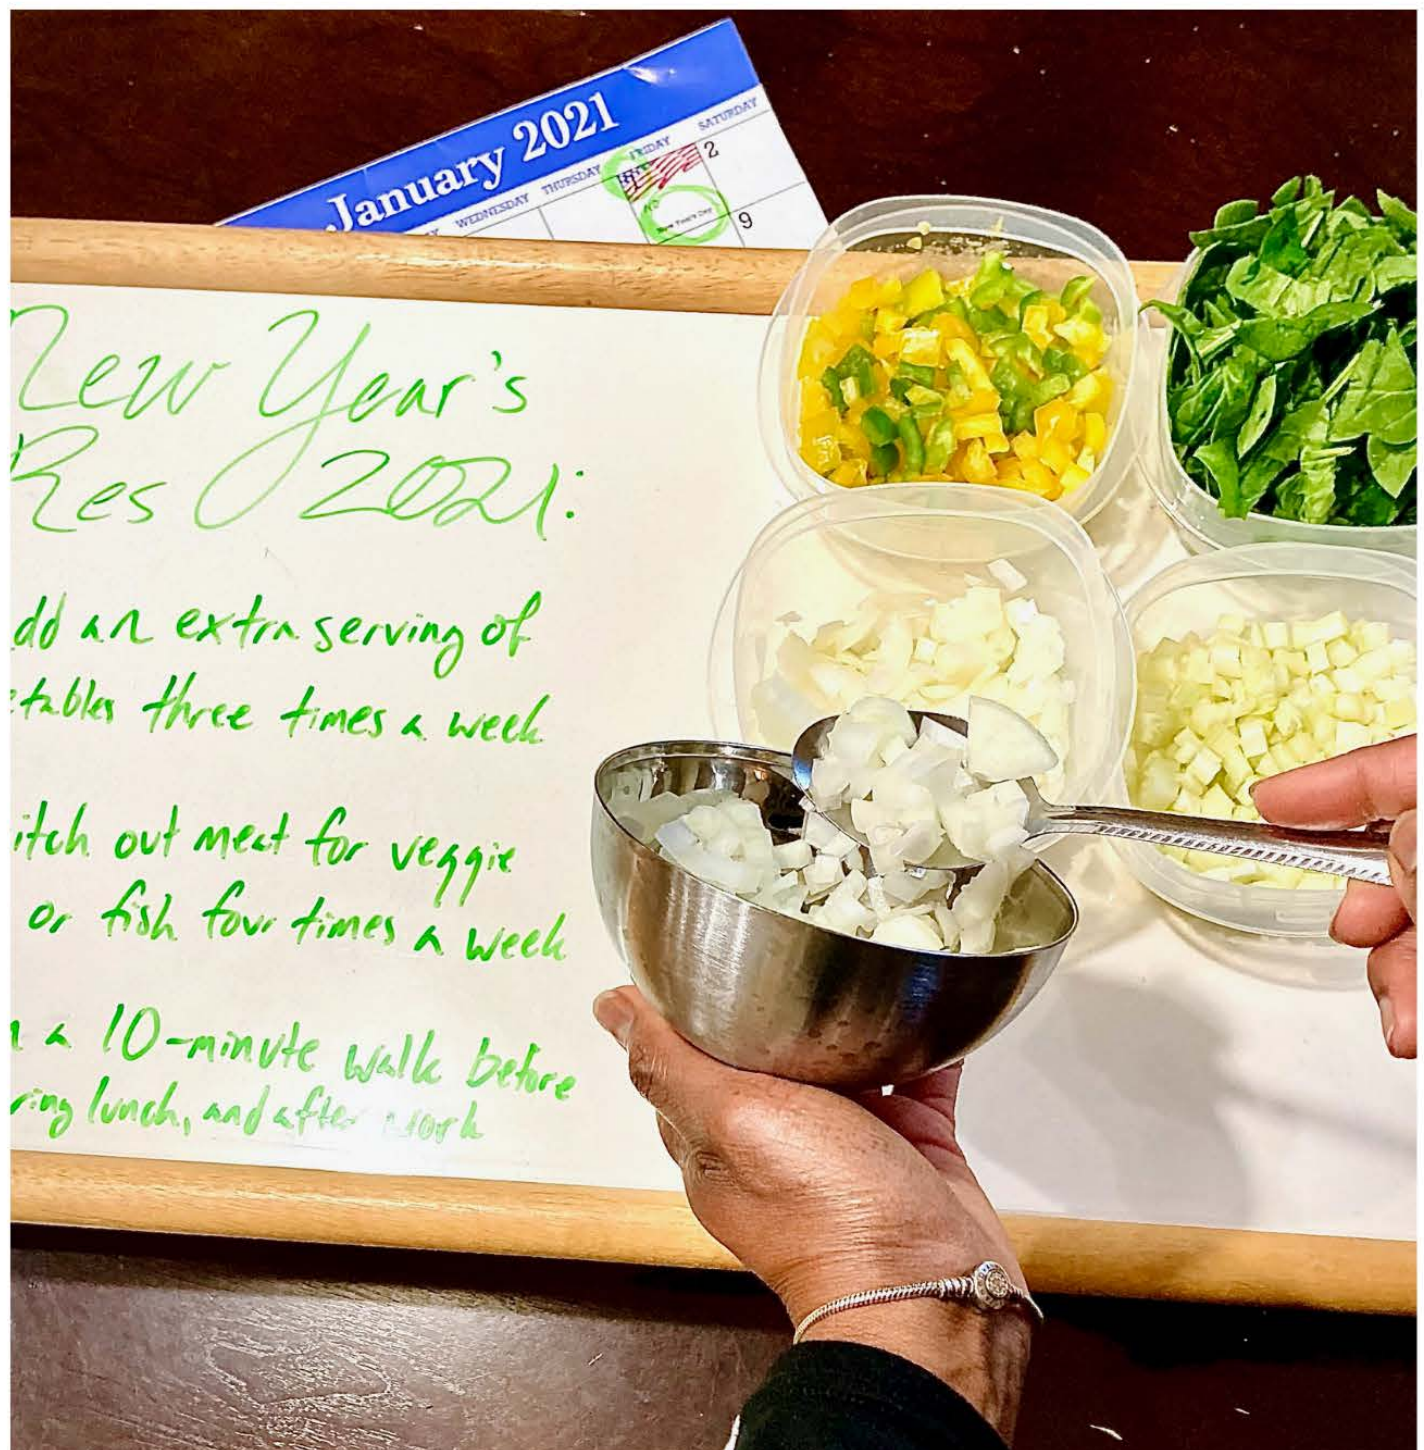 January 2021
WEDNESDAY THURSDAY FRIDAY SATURDAY
2
New Year's Day
9
New Year's
Res 2021:
dd an extra serving of
etables three times a week
itch out meat for veggie
or fish four times a week
a 10-minute walk before
ring lunch, and after work